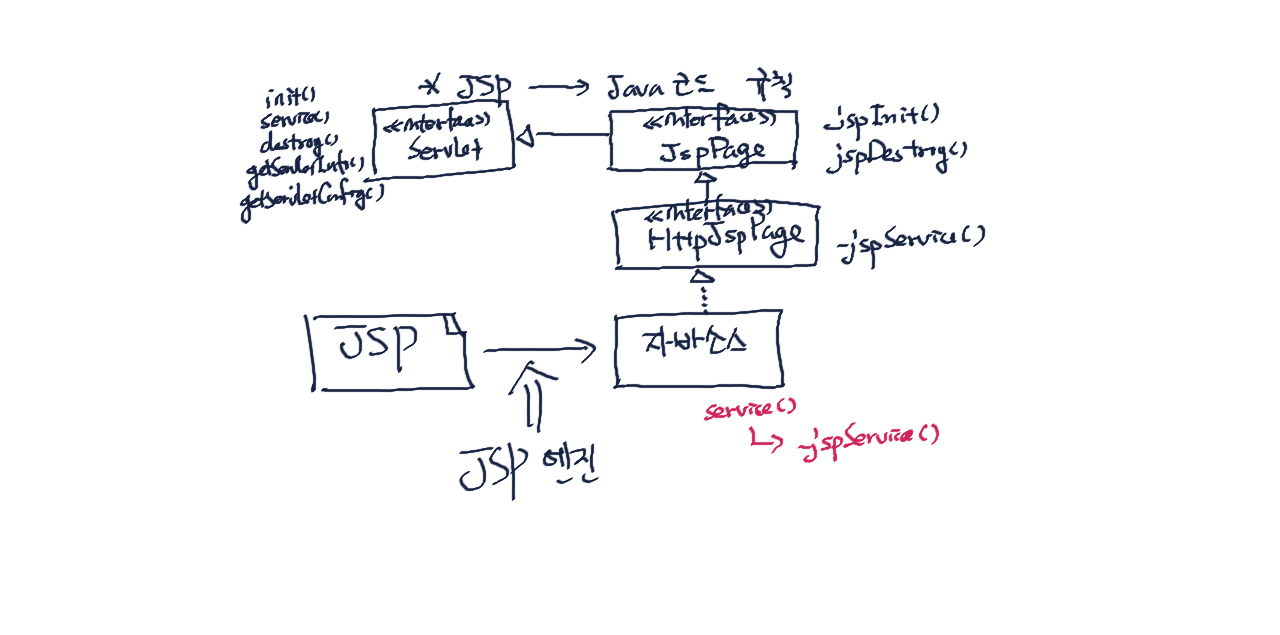 * JSP → Java 코드 규칙
init()
service()
destroy()
getServletInfo()
getServletConfig()
<<interface>>
Servlet
<<interface>>
JspPage
jspInit()
jspDestroy()
<<interface>>
HttpJspPage
-jspService()
JSP
자바소스
JSP 엔진
service()
↳ -jspService()